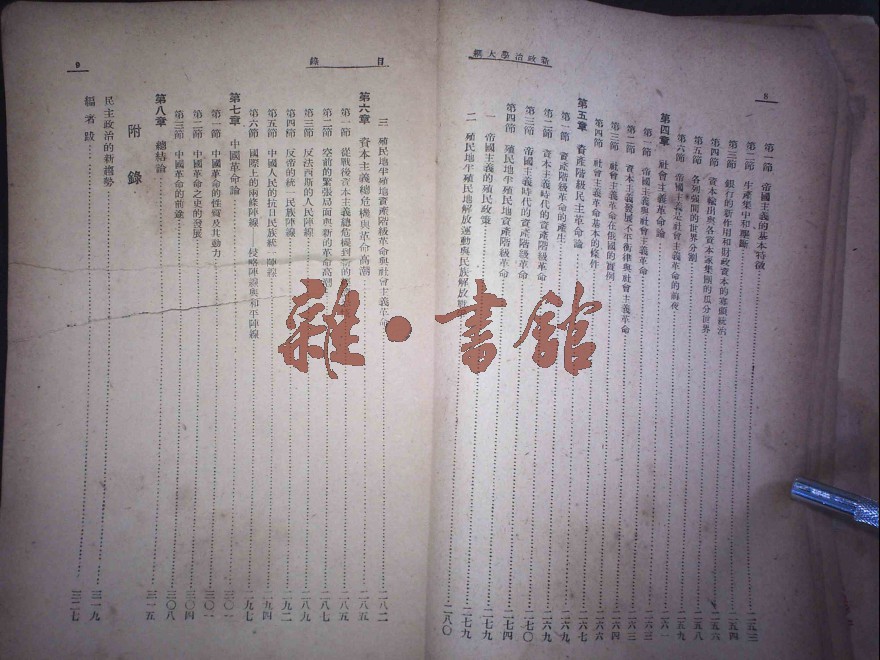 8
新政治學大綱
第一節 帝國主義的基本特徵 二五三
第二節 生產集中和壟斷 二五三
第三節 銀行的新作用和財政資本的寡頭統治 二五四
第四節 資本輸出與各資本家集團的瓜分世界 二五六
第五節 各列强間的世界分割 二五八
第六節 帝國主義是社會主義革命的前夜 二五九
第四章 社會主義革命論 二六一
第一節 帝國主義與社會主義革命 二六三
第二節 資本主義發展不平衡律與社會主義革命 二六三
第三節 社會主義革命在俄國的實例 二六四
第四節 社會主義革命基本的條件 二六六
第五章 資產階級民主革命論 二六七
第一節 資產階級革命的產生 二六九
第二節 資本主義時代的資產階級革命 二六九
第三節 帝國主義時代的資產階級革命 二七〇
第四節 殖民地半殖民地資產階級革命 二七四
一 帝國主義的殖民政策 二七九
二 殖民地半殖民地解放運動與民族解放 二八〇
目錄
9
三 殖民地半殖民地資產階級革命與社會主義革命 二八二
第六章 資本主義總危機與革命高潮 二八五
第一節 從戰後資本主義總危機到 二八五
第二節 空前的緊張局面與新的革命高潮 二八七
第三節 反法西斯的人民陣線 二八九
第四節 反帝的統一民族陣線 二九二
第五節 中國人民的抗日民族統一陣線 二九四
第六節 國際上的兩條陣線 侵略陣線與和平陣線 二九七
第七章 中國革命論 三〇一
第一節 中國革命的性質及其動力 三〇一
第二節 中國革命之史的發展 三〇四
第三節 中國革命的前途 三〇八
第八章 總結論 三一五
附錄
民主政治的新趨勢 三一九
編者跋 三二七
雜·書館